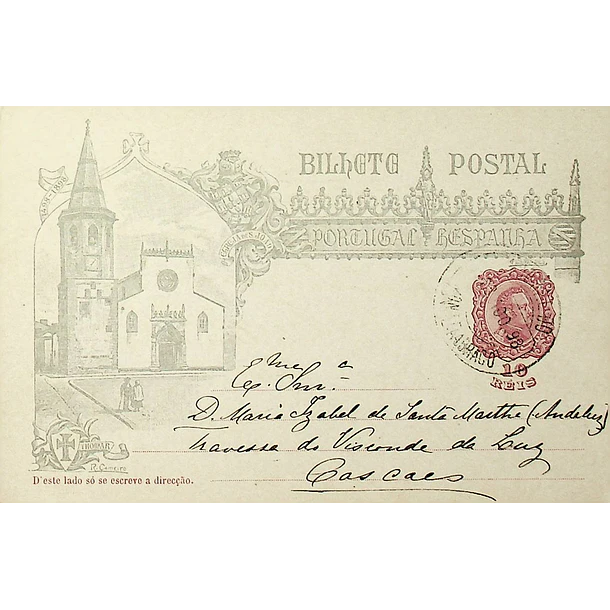 BILHETE POSTAL
PORTUGAL HESPANHA
1498-1898
10
REIS
Ex.me Snr.a
D. Maria Izabel de Santa Martha (Andaluz)
Travessa do Visconde da Luz
Cascaes
THOMAR
R. Carneiro
D'este lado só se escreve a direcção.